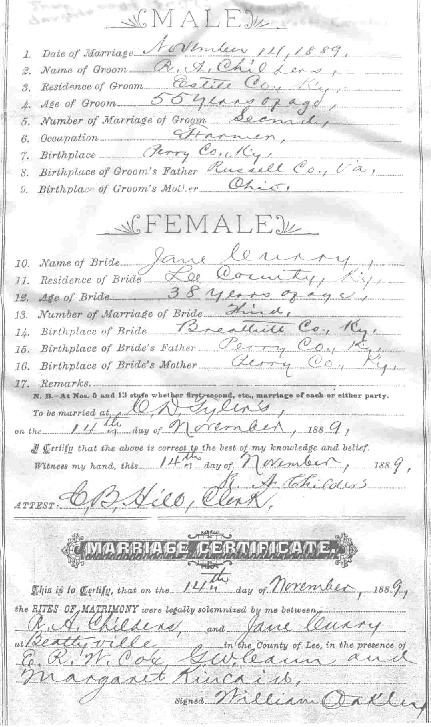 MALE
1. Date of Marriage November 14, 1889.
2. Name of Groom R. A. Childers,
3. Residence of Groom Estill Co., Ky.
4. Age of Groom 55 years of age,
5. Number of Marriage of Groom Second,
6. Occupation Farmer,
7. Birthplace Perry Co., Ky.
8. Birthplace of Groom's Father Russell Co., Va.
9. Birthplace of Groom's Mother Ohio.
FEMALE
10. Name of Bride Jane Curry,
11. Residence of Bride Lee County, Ky.
12. Age of Bride 38 years of age,
13. Number of Marriage of Bride Third,
14. Birthplace of Bride Breathitt Co., Ky.
15. Birthplace of Bride's Father Perry Co., Ky.
16. Birthplace of Bride's Mother Perry Co., Ky.
17. Remarks.
N. B.—At Nos. 5 and 13 state whether first, second, etc., marriage of each or either party.
To be married at C. D.
on the 14th day of November, 1889,
I Certify that the above is correct to the best of my knowledge and belief.
Witness my hand, this 14th day of November, 1889.
R. A. Childers
ATTEST: C. B. Clerk.
MARRIAGE CERTIFICATE.
This is to Certify, that on the 14th day of November, 1889,
the RITES OF MATRIMONY were legally solemnized by me between
R. A. Childers, and Jane Curry
at Beattyville in the County of Lee, in the presence of
R. W. Cox, and
Margaret Kincaid.
Signed William Oakley